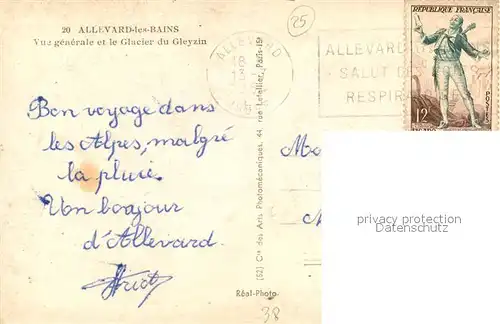 20 ALLEVARD-les-BAINS
Vue générale et le Glacier du Gleyzin
25
ALLEVARD
18
13
ALLEVARD
SALUT D
RESPIR
RÉPUBLIQUE FRANÇAISE
POSTES
12
FIGARO
Bon voyage dans
les Alpes, malgré
la pluie.
Un bonjour
d'Allevard.
(52) Cie des Arts Photomécaniques, 44, rue Letellier, Paris-15e
Réal-Photo
38
privacy protection
Datenschutz